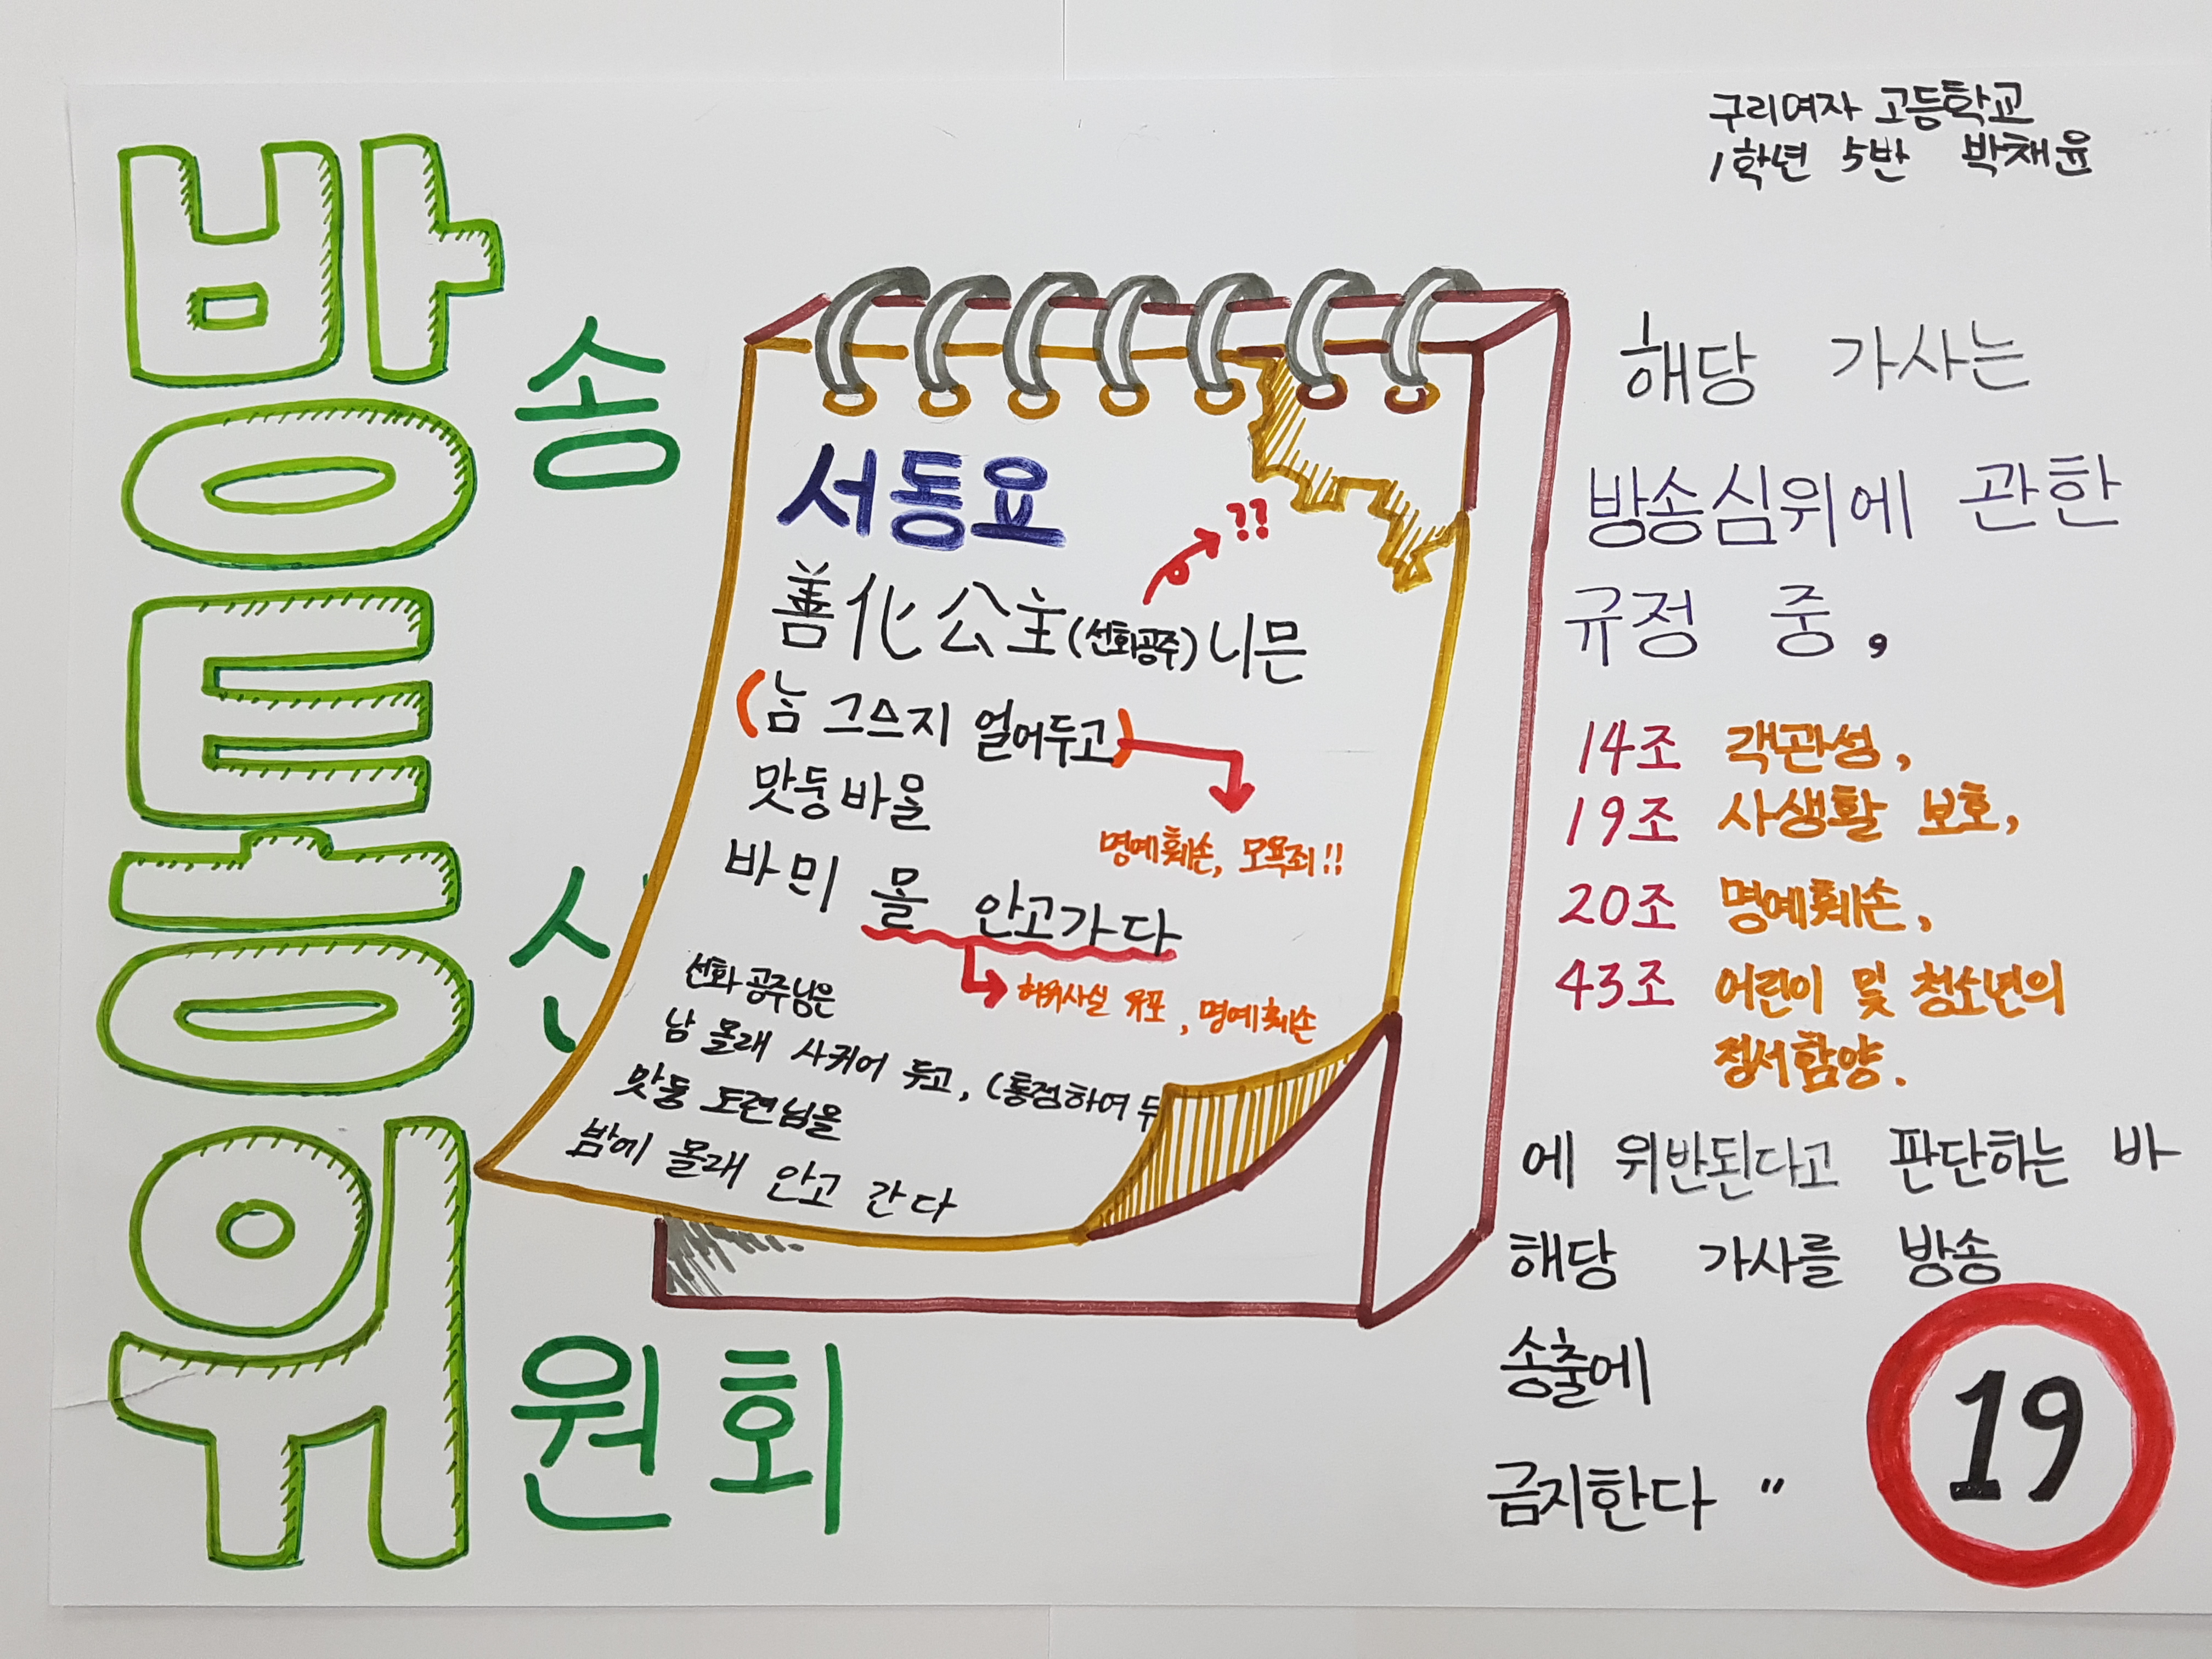 구리여자 고등학교
1학년 5반 박채윤
방송
통신
위원회
서동요
??
善化公主(선화공주)니믄
(눔 그스지 얼어두고)
맛둥바올
명예훼손, 모욕죄!!
바믜 몰 안고가다
허위사실 유포, 명예훼손
선화공주님은
남 몰래 사귀어 두고, (통정하여 두
맛둥 도련님을
밤에 몰래 안고 간다
해당 가사는
방송심위에 관한
규정 중,
14조 객관성,
19조 사생활 보호,
20조 명예훼손,
43조 어린이 및 청소년의
정서함양.
에 위반된다고 판단하는 바
해당 가사를 방송
송출에
금지한다 "
19